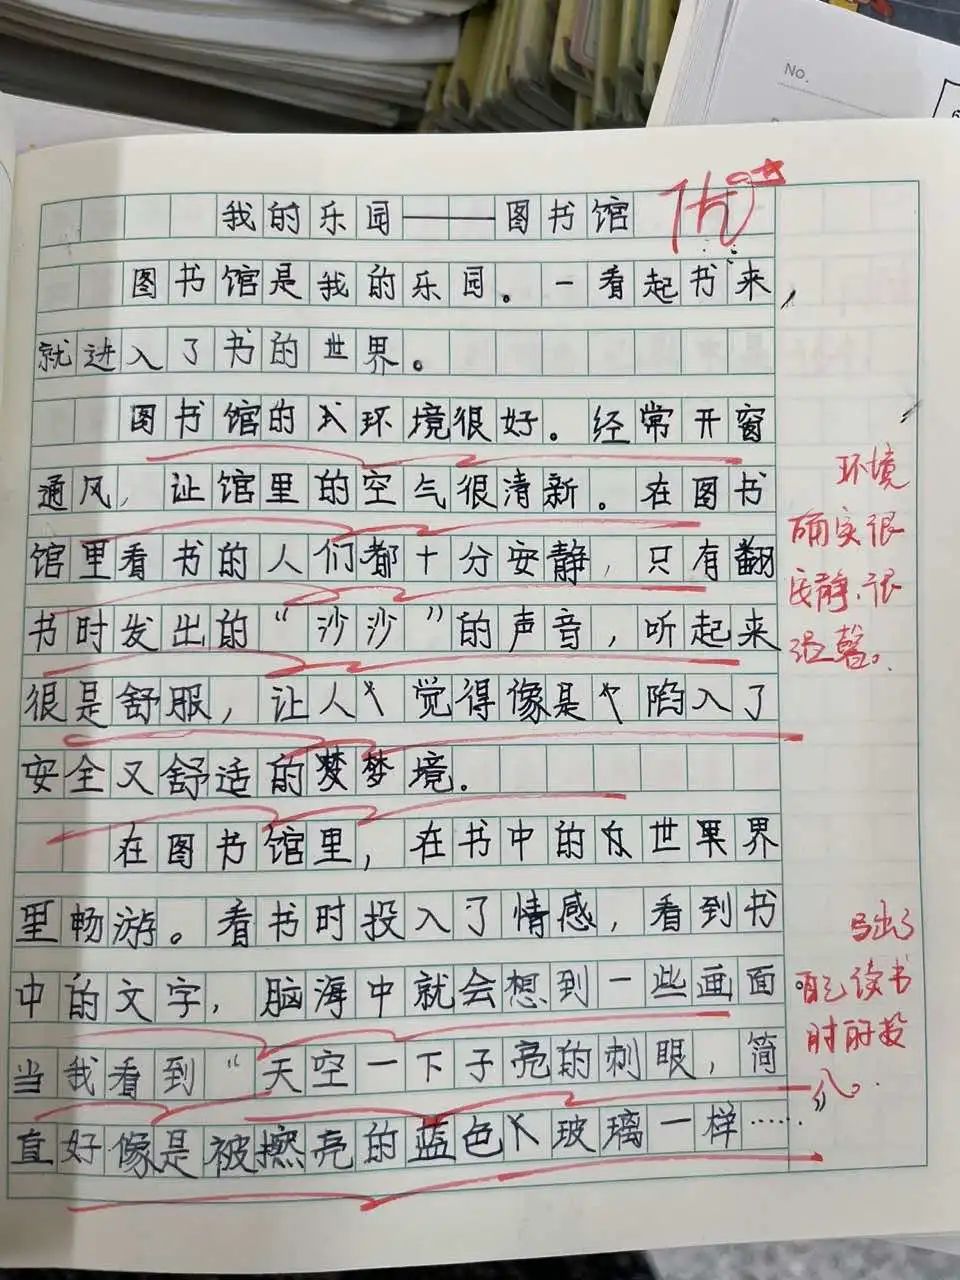 No.
优
我的乐园——图书馆
图书馆是我的乐园。一看起书来,
就进入了书的世界。
图书馆的环境很好。经常开窗
通风,让馆里的空气很清新。在图书
馆里看书的人们都十分安静,只有翻
书时发出的“沙沙”的声音,听起来
很是舒服,让人觉得像是陷入了
安全又舒适的梦境。
在图书馆里,在书中的世界
里畅游。看书时投入了情感,看到书
中的文字,脑海中就会想到一些画面
当我看到“天空一下子亮的刺眼,简
直好像是被擦亮的蓝色玻璃一样……”
环境
确实很
安静、很
温馨。
写出了
自己读书
时的投
入。